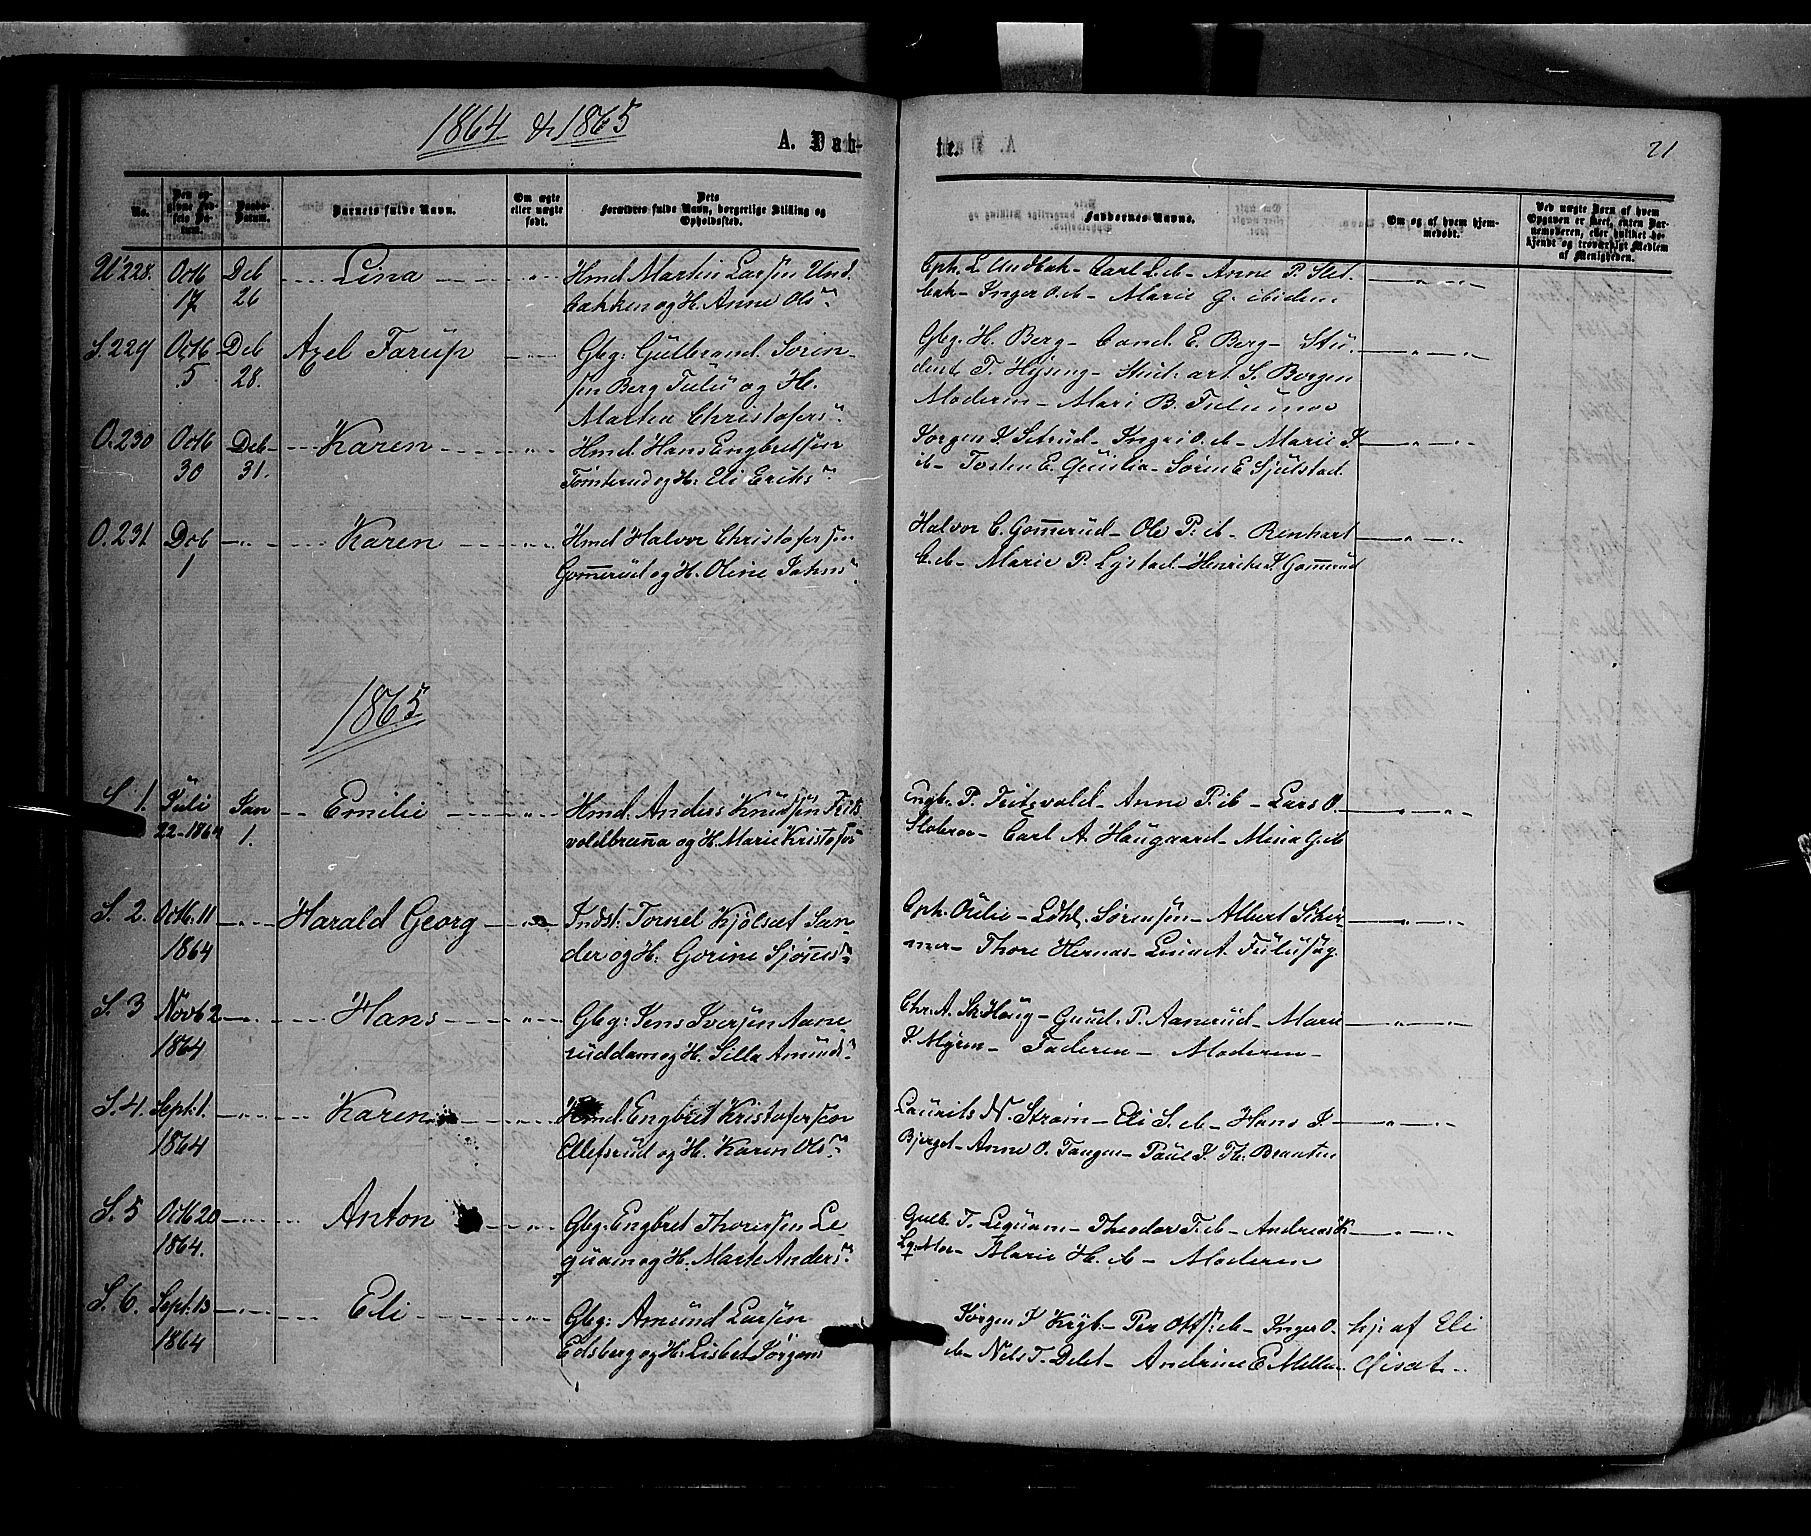 1864 & 1865
A. Døb-
te.
21
No.
Den op-
givne Fød-
sels Da-
tum.
Daabs-
Datum.
Barnets fulde Navn.
Om ægte
eller uægte
født.
Dets
Forældres fulde Navn, borgerlige Stilling og
Opholdssted.
Faddernes Navne.
Om og af hvem hjem-
medøbt.
Ved uægte Børn af hvem
Opgaven er skeet, enten Bar-
nemoderen, eller hvilket be-
kjendt og troværdigt Medlem
af Menigheden.
U 228. Octb 17 Deb 26 Lina
Hmd. Martin Larsen Und
bakken og H. Anne Ols
Cph. L. Undbak - Carl L. ib - Anne P. Slet
bak - Inger O. ib - Marie G. ibidem
S. 229 Octb 5 Deb 28. Axel Farup
Gbg: Gulbrand Soren-
sen Berg Fulu og H.
Marthea Christofers
Gbg. H. Berg - Cand. E. Berg - Stu-
dent T. Hysing - Stud. art. S. Borgen
Moderen - Mari B. Fulumoe
O. 230 Octb 30 Deb 31. Karen
Hmd. Hans Engbretsen
Tømterud og H. Eli Eriks
Jørgen J. Setrud - Ingri O. ib - Marie J.
ib - Tosten E. - Søren E. Sjulstad
O. 231 Deb 1 Karen
Hmd Halvor Christofersen
Gom̅erud og H. Oline Johns
Halvor C. Gom̅erud - Ole P. ib - Renhart
C. ib - Marie P. Lystad - Henrik J Gom̅erud
1865
S 1. Juli 22-1864 Jan 1. Emilie
Hmd. Anders Knudsen Frits
voldbraŋa og H. Marie Kristofs
Engb. P. Fritzvold - Anne P. ib - Lars O.
Carl A. Haugaard - Mina G. ib
S. 2. Octb. 11 1864 Harald Georg
Indst: Tornel Kjølset San-
der og H. Gorine Sjøn̅es
Cph. - Sørensen - Albert Schir-
mer - Thore Hernæs - A. Fulusag.
S. 3 Novb 2 1864 Hans
Gbg: Jens Iversen Aane-
ruddam og H. Silla Amunds
Chr. A. Haug - Gund. P. Aanerud - Marie
J. Myren - Faderen - Moderen -
S. 4. Sept. 1. 1864 Karen
Hmd. Engbret Kristofersen
Ellefsrud og H. Karen Ols
Laurits N. Strøm - Eli S. ib - Hans J.
Bjerget - Anne O. Tangen - Paul J. Braaten
S. 5 Octb 20 1864. Anton
Gbg: Engbret Thoresen Le-
quam og H. Marth Anders
Gulb. T. Lequam - Theodor T. ib - Andreas K
Marie H. ib - Moderen
S. 6. Sept. 13 1864 Eli
Gbg: Amund Larsen
Edsberg og H: Lisbet Jørgens
Jørgen J Kryb - Per Ols. ib - Inger O.
ib - Nils T. Delet - Andrine E Mellem
hj: af Eli
Gisat -